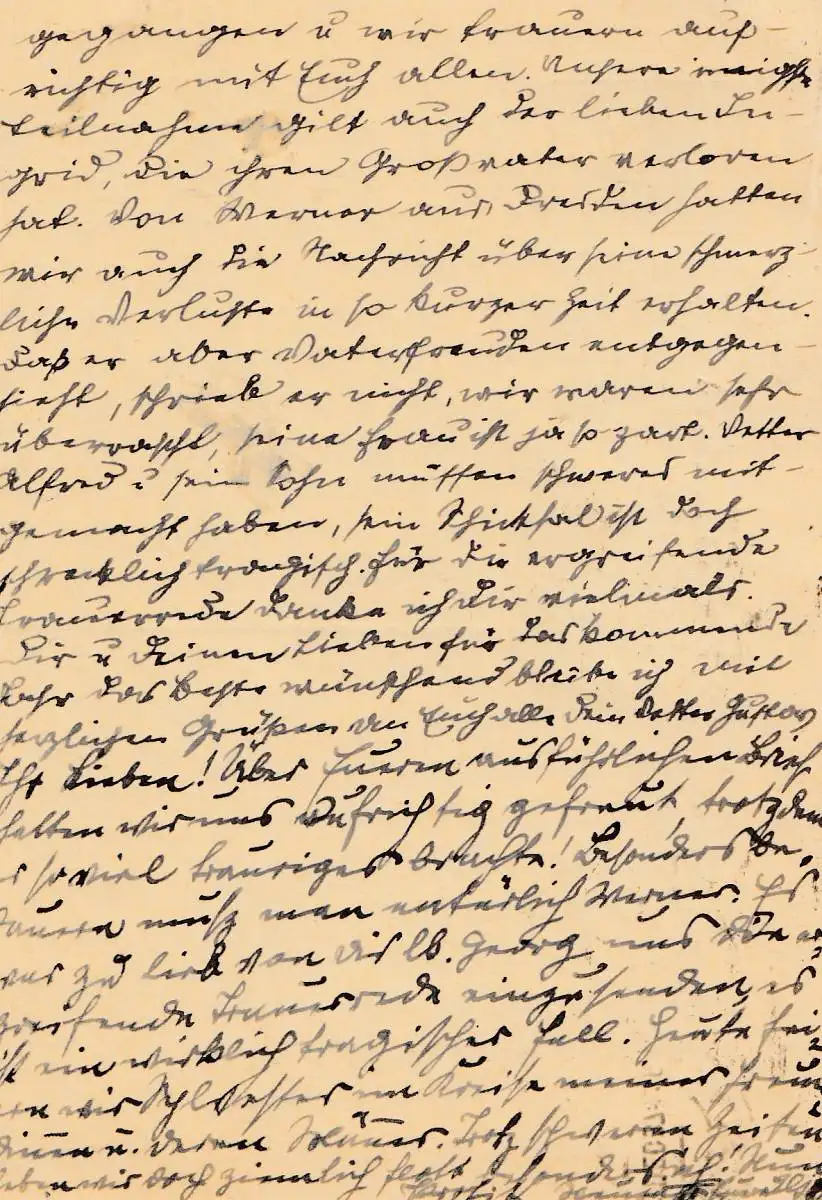 gegangen u wir trauern auf-
richtig mit Euch allen. Unsere innigste
Teilnahme gilt auch der lieben In-
grid, die ihren Großvater verloren
hat. Von Werner aus Dresden hatten
wir auch die Nachricht über seine schmerz-
liche Verluste in so kurzer Zeit erhalten.
Daß er aber Vaterfreuden entgegen-
sieht, schrieb er nicht, wir waren sehr
überrascht, seine Frau ist ja so zart. Vetter
Alfred u sein Sohn müssen schweres mit-
gemacht haben, sein Schicksal ist doch
schrecklich tragisch. Für die ergreifende
Trauerrede danke ich Dir vielmals.
Dir u Deinen Lieben für das kommende
Jahr das beste wünschend bleibe ich mit
herzlichen Grüßen an Euch alle Dein Vetter Gustav
Ihr Lieben! Über Eueren ausführlichen Brief
hatten wir uns aufrichtig gefreut, trotzdem
er so viel trauriges brachte! Besonders be-
dauern musz man natürlich Werner. Es
war zu lieb von dir lb. Georg uns die er-
greifende Trauerrede einzusenden, es
ist ein wirklich tragischer Fall. Heute fei-
ern wir Sylvester im Kreise meiner Freun
dinnen u. deren Männer. Trotz schweren Zeiten
leben wir doch ziemlich flott Nun